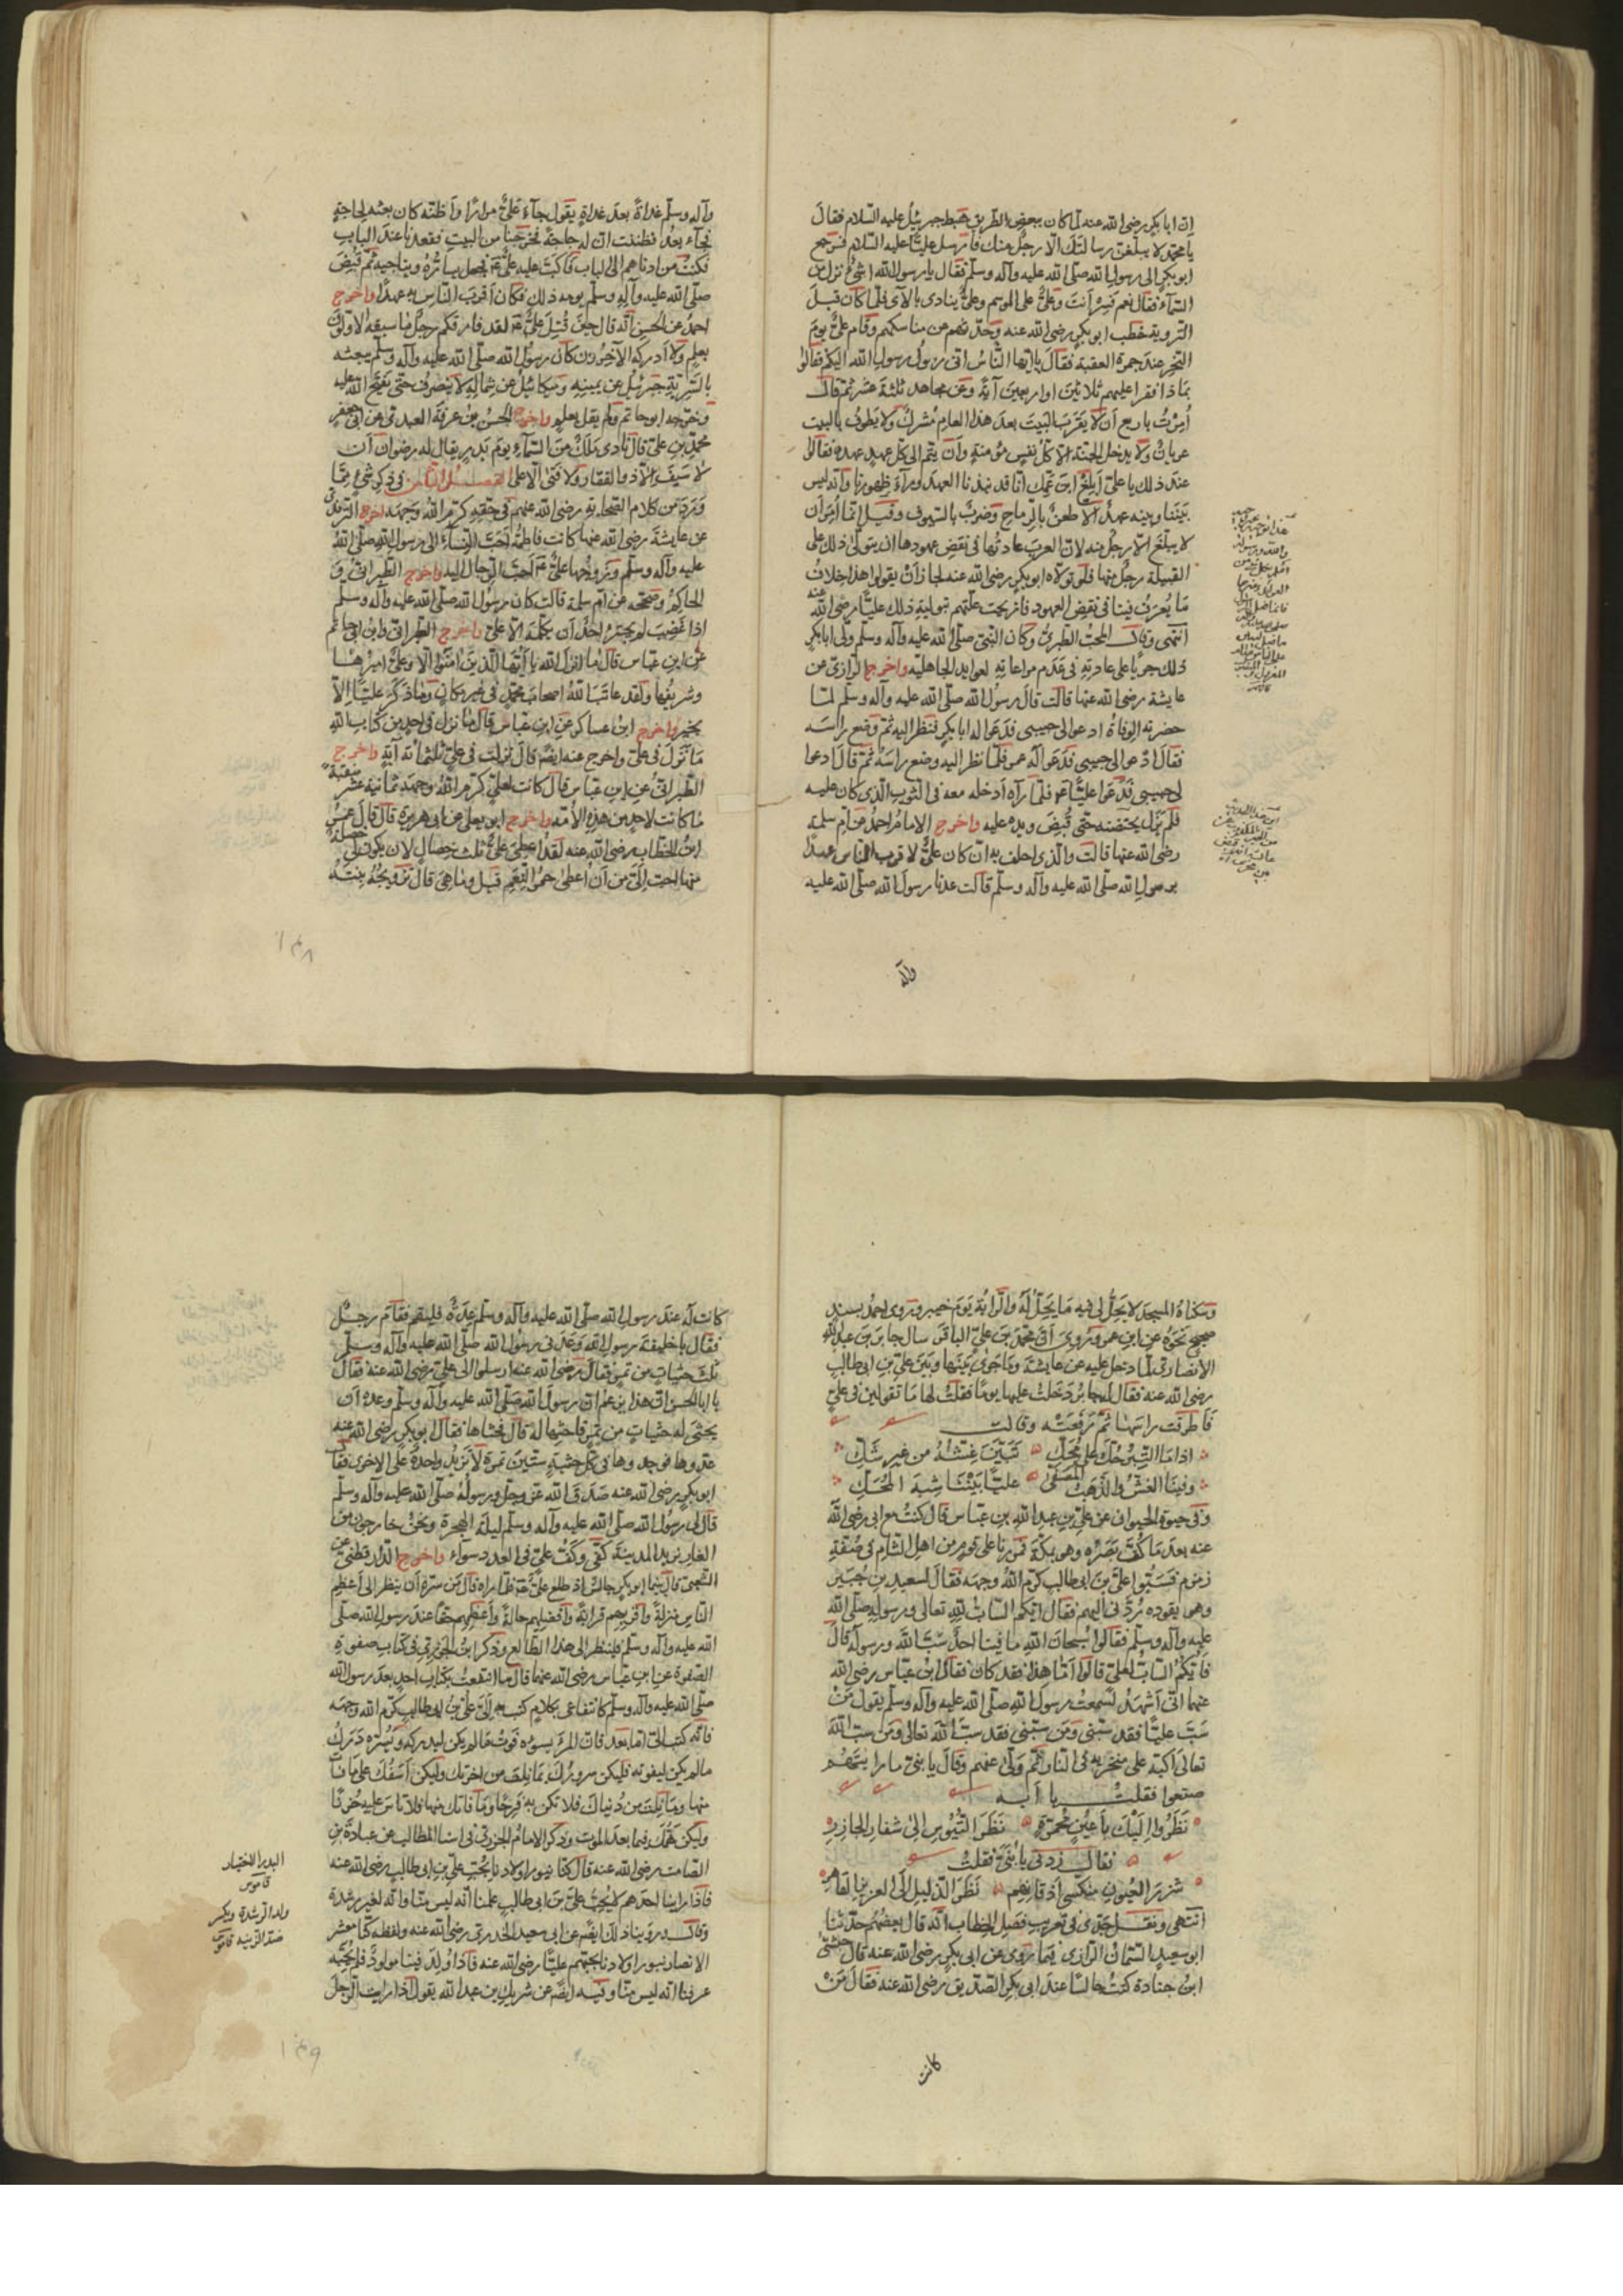 ان ابا بكر رضى الله عنه لما كان ببعض الطريق هبط جبريل عليه السلام فقال
يا محمد لا يبلغن رسالتك الا رجل منك فارسل عليا عليه السلام فرجع
ابو بكر الى رسول الله صلى الله عليه وآله وسلم فقال يا رسول الله اشئ نزل من
السمآء فقال نعم انت وعلى على الموسم وعلى ينادى بالآى فلما كان قبل
التروية خطب ابو بكر رضى الله عنه وحدثهم عن مناسكهم وقام على يوم
النحر عند جمرة العقبة فقال يا ايها الناس انى رسول رسول الله اليكم فقالوا
بماذا فقرا عليهم ثلاثين او اربعين آية وعن مجاهد ثلثة عشر ثم قال
امرت باربع ان لا يقرب البيت بعد هذا العام مشرك ولا يطوف بالبيت
عريان ولا يدخل الجنة الا كل نفس مؤمنة وان يتم الى كل عهد عهده فقالوا
عند ذلك يا على ابلغ ابن عمك انا قد نبذنا العهد ورآء ظهورنا وانه ليس
بيننا وبينه عهد الا طعن بالرماح وضرب بالسيوف وقيل انما امر ان
لا يبلغ الا رجل منه لان العرب عادتها فى نقض عهودها ان يتولى ذلك على
القبيلة رجل منها فلو تولاه ابو بكر رضى الله عنه لجاز ان يقولوا هذا خلاف
ما يعرف فينا فى نقض العهود فازيحت علتهم بتولية ذلك عليا رضى الله عنه
انتهى وقال المحب الطبرى وكان النبى صلى الله عليه وآله وسلم ولى ابا بكر
ذلك جريا على عادته فى عدم مراعاته لعوايد الجاهلية واخرج الرازى عن
عايشة رضى الله عنها قالت قال رسول الله صلى الله عليه وآله وسلم لما
حضرته الوفاة ادعوا لى حبيبى فدعوا له ابا بكر فنظر اليه ثم وضع راسه
فقال ادعوا لى حبيبى فدعوا له عمر فلما نظر اليه وضع راسه ثم قال ادعوا
لى حبيبى فدعوا عليا فلما رآه ادخله معه فى الثوب الذى كان عليه
فلم يزل يحتضنه حتى قبض ويده عليه واخرج الامام احمد عن ام سلمة
رضى الله عنها قالت والذى احلف به ان كان على لاقرب الناس عهدا
برسول الله صلى الله عليه وآله وسلم قالت عدنا رسول الله صلى الله عليه
وآله
وآله وسلم غداة بعد غداة يقول جآء على مرارا واظنه كان بعثه لحاجة
فجآء بعد فظننت ان له حاجة فخرجنا من البيت فقعدنا عند الباب
فكنت من ادناهم الى الباب فاكب عليه على فجعل يساره ويناجيه ثم قبض
صلى الله عليه وآله وسلم يومه ذلك فكان اقرب الناس به عهدا واخرج
احمد عن الحسن انه قال حين قتل على لقد فارقكم رجل ما سبقه الاولون
بعلم ولا ادركه الآخرون كان رسول الله صلى الله عليه وآله وسلم يبعثه
بالسرية جبرئيل عن يمينه وميكائيل عن شماله لا ينصرف حتى يفتح الله عليه
وخرجه ابو حاتم ولم يقل بعلم واخرج الحسن بن عرفة العبدى عن ابى جعفر
محمد بن على قال نادى ملك من السمآء يوم بدر يقال له رضوان ان
لا سيف الا ذو الفقار ولا فتى الا على الفصل الثامن فى ذكر شئ مما
ورد من كلام الصحابة رضى الله عنهم فى حقه كرم الله وجهه اخرج الترمذى
عن عايشة رضى الله عنها كانت فاطمة احب النسآء الى رسول الله صلى الله
عليه وآله وسلم وزوجها على احب الرجال اليه واخرج الطبرانى و
الحاكم وصححه عن ام سلمة قالت كان رسول الله صلى الله عليه وآله وسلم
اذا غضب لم يجتر احد ان يكلمه الا على واخرج الطبرانى وابن ابى حاتم
عن ابن عباس قال ما انزل الله يا ايها الذين امنوا الا وعلى اميرها
وشريفها ولقد عاتب الله اصحاب محمد فى غير مكان وما ذكر عليا الا
بخير واخرج ابن عساكر عن ابن عباس قال ما نزل فى احد من كتاب الله
ما نزل فى على واخرج عنه ايضا قال نزلت فى على ثلثمائة آية واخرج
الطبرانى عن ابن عباس قال كانت لعلى كرم الله وجهه ثمانية عشر منقبة
ما كانت لاحد من هذه الامة واخرج ابو يعلى عن ابى هريرة قال قال عمر
ابن الخطاب رضى الله عنه لقد اعطى على ثلث خصال لان يكون لى خصلة
منها احب الى من ان اعطى حمر النعم قيل وما هى قال تزويجه بنته
١٤٨
وسكناه المسجد لا يحل لى فيه ما يحل له والراية يوم خيبر وروى احمد بسند
صحيح نحوه عن ابن عمر وروى ان محمد بن على الباقر سال جابر بن عبد الله
الانصارى لما دخل عليه عن عايشة وما جرى بينها وبين على بن ابى طالب
رضى الله عنه فقال لجابر دخلت عليها يوما فقلت لها ما تقولين فى على
فاطرقت راسها ثم رفعته وقالت
اذا ما التبر حك على محك تبين غشه من غير شك
وفينا الغش والذهب المصفى عليا بيننا شبه المحك
وفى حيوة الحيوان عن على بن عبد الله بن عباس قال كنت مع ابى رضى الله
عنه بعد ما كف بصره وهو بمكة فمررنا على قوم من اهل الشام فى صفة
زمزم فسبوا على بن ابى طالب كرم الله وجهه فقال لسعيد بن جبير
وهو يقوده ردنى اليهم فقال ايكم الساب لله تعالى ورسوله صلى الله
عليه وآله وسلم فقالوا سبحان الله ما فينا احد سب الله ورسوله قال
فايكم الساب لعلى قالوا اما هذا فقد كان فقال ابن عباس رضى الله
عنهما انى اشهد لسمعت رسول الله صلى الله عليه وآله وسلم يقول من
سب عليا فقد سبنى ومن سبنى فقد سب الله تعالى ومن سب الله
تعالى اكبه على منخريه فى النار ثم ولى عنهم وقال يا بنى ما رايتهم
صنعوا فقلت يا ابه
نظروا اليك باعين محمرة نظر التيوس الى شفار الجازر
فقال زدنى يا بنى فقلت
شزر العيون منكسى اذقانهم نظر الذليل الى العزيز القاهر
انتهى ونقل جدى فى تعريب فصل الخطاب انه قال بعضهم حدثنا
ابو سعيد السمان الرازى فيما روى عن ابى بكر رضى الله عنه قال حبشى
ابن جنادة كنت جالسا عند ابى بكر الصديق رضى الله عنه فقال من
كانت
كانت له عند رسول الله صلى الله عليه وآله وسلم عدة فليقم فقام رجل
فقال يا خليفة رسول الله وعدنى رسول الله صلى الله عليه وآله وسلم
ثلث حثيات من تمر فقال رضى الله عنه ارسلوا الى على رضى الله عنه فقال
يا ابا الحسن ان هذا يزعم ان رسول الله صلى الله عليه وآله وسلم وعده ان
يحثى له حثيات من تمر فاحثها له قال فحثاها فقال ابو بكر رضى الله عنه
عدوها فوجدوها فى كل حثية ستين تمرة لا تزيد واحدة على الاخرى فقال
ابو بكر رضى الله عنه صدق الله عز وجل ورسوله صلى الله عليه وآله وسلم
قال لى رسول الله صلى الله عليه وآله وسلم ليلة الهجرة ونحن خارجون من
الغار نريد المدينة كفى وكف على فى العدد سوآء واخرج الدارقطنى عن
الشعبى قال بينما ابو بكر جالس اذ طلع على فلما راه قال من سره ان ينظر الى اعظم
الناس منزلة واقربهم قرابة وافضلهم حالة واعظمهم حقا عند رسول الله صلى
الله عليه وآله وسلم فلينظر الى هذا الطالع وذكر ابن الجوزى فى كتاب صفوة
الصفوة عن ابن عباس رضى الله عنهما قال ما انتفعت بكتاب احد بعد رسول الله
صلى الله عليه وآله وسلم كانتفاعى بكلام كتب به الى على بن ابى طالب كرم الله وجهه
فانه كتب الى اما بعد فان المرء يسوءه فوت ما لم يكن ليدركه ويسره درك
ما لم يكن ليفوته فليكن سرورك بما نلت من اخرتك وليكن اسفك على ما فات
منها وما نلت من دنياك فلا تكن به فرحا وما فاتك منها فلا تاس عليه حزنا
وليكن همك فيما بعد الموت وذكر الامام الجزرى فى اسنا المطالب عن عبادة بن
الصامت رضى الله عنه قال كنا نبور اولادنا بحب على بن ابى طالب رضى الله عنه
فاذا راينا احدهم لا يحب على بن ابى طالب علمنا انه ليس منا وانه لغير رشدة
وقال وروينا ذلك ايضا عن ابى سعيد الخدرى رضى الله عنه ولفظه كنا معشر
الانصار نبور اولادنا بحبهم عليا رضى الله عنه فاذا ولد فينا مولود فلم يحبه
عرفنا انه ليس منا وفيه ايضا عن شريك بن عبد الله يقول اذا رايت الرجل
البور الاختبار
قاموس
ولد الرشدة ويكسر
ضد الزنية قاموس
١٤٩